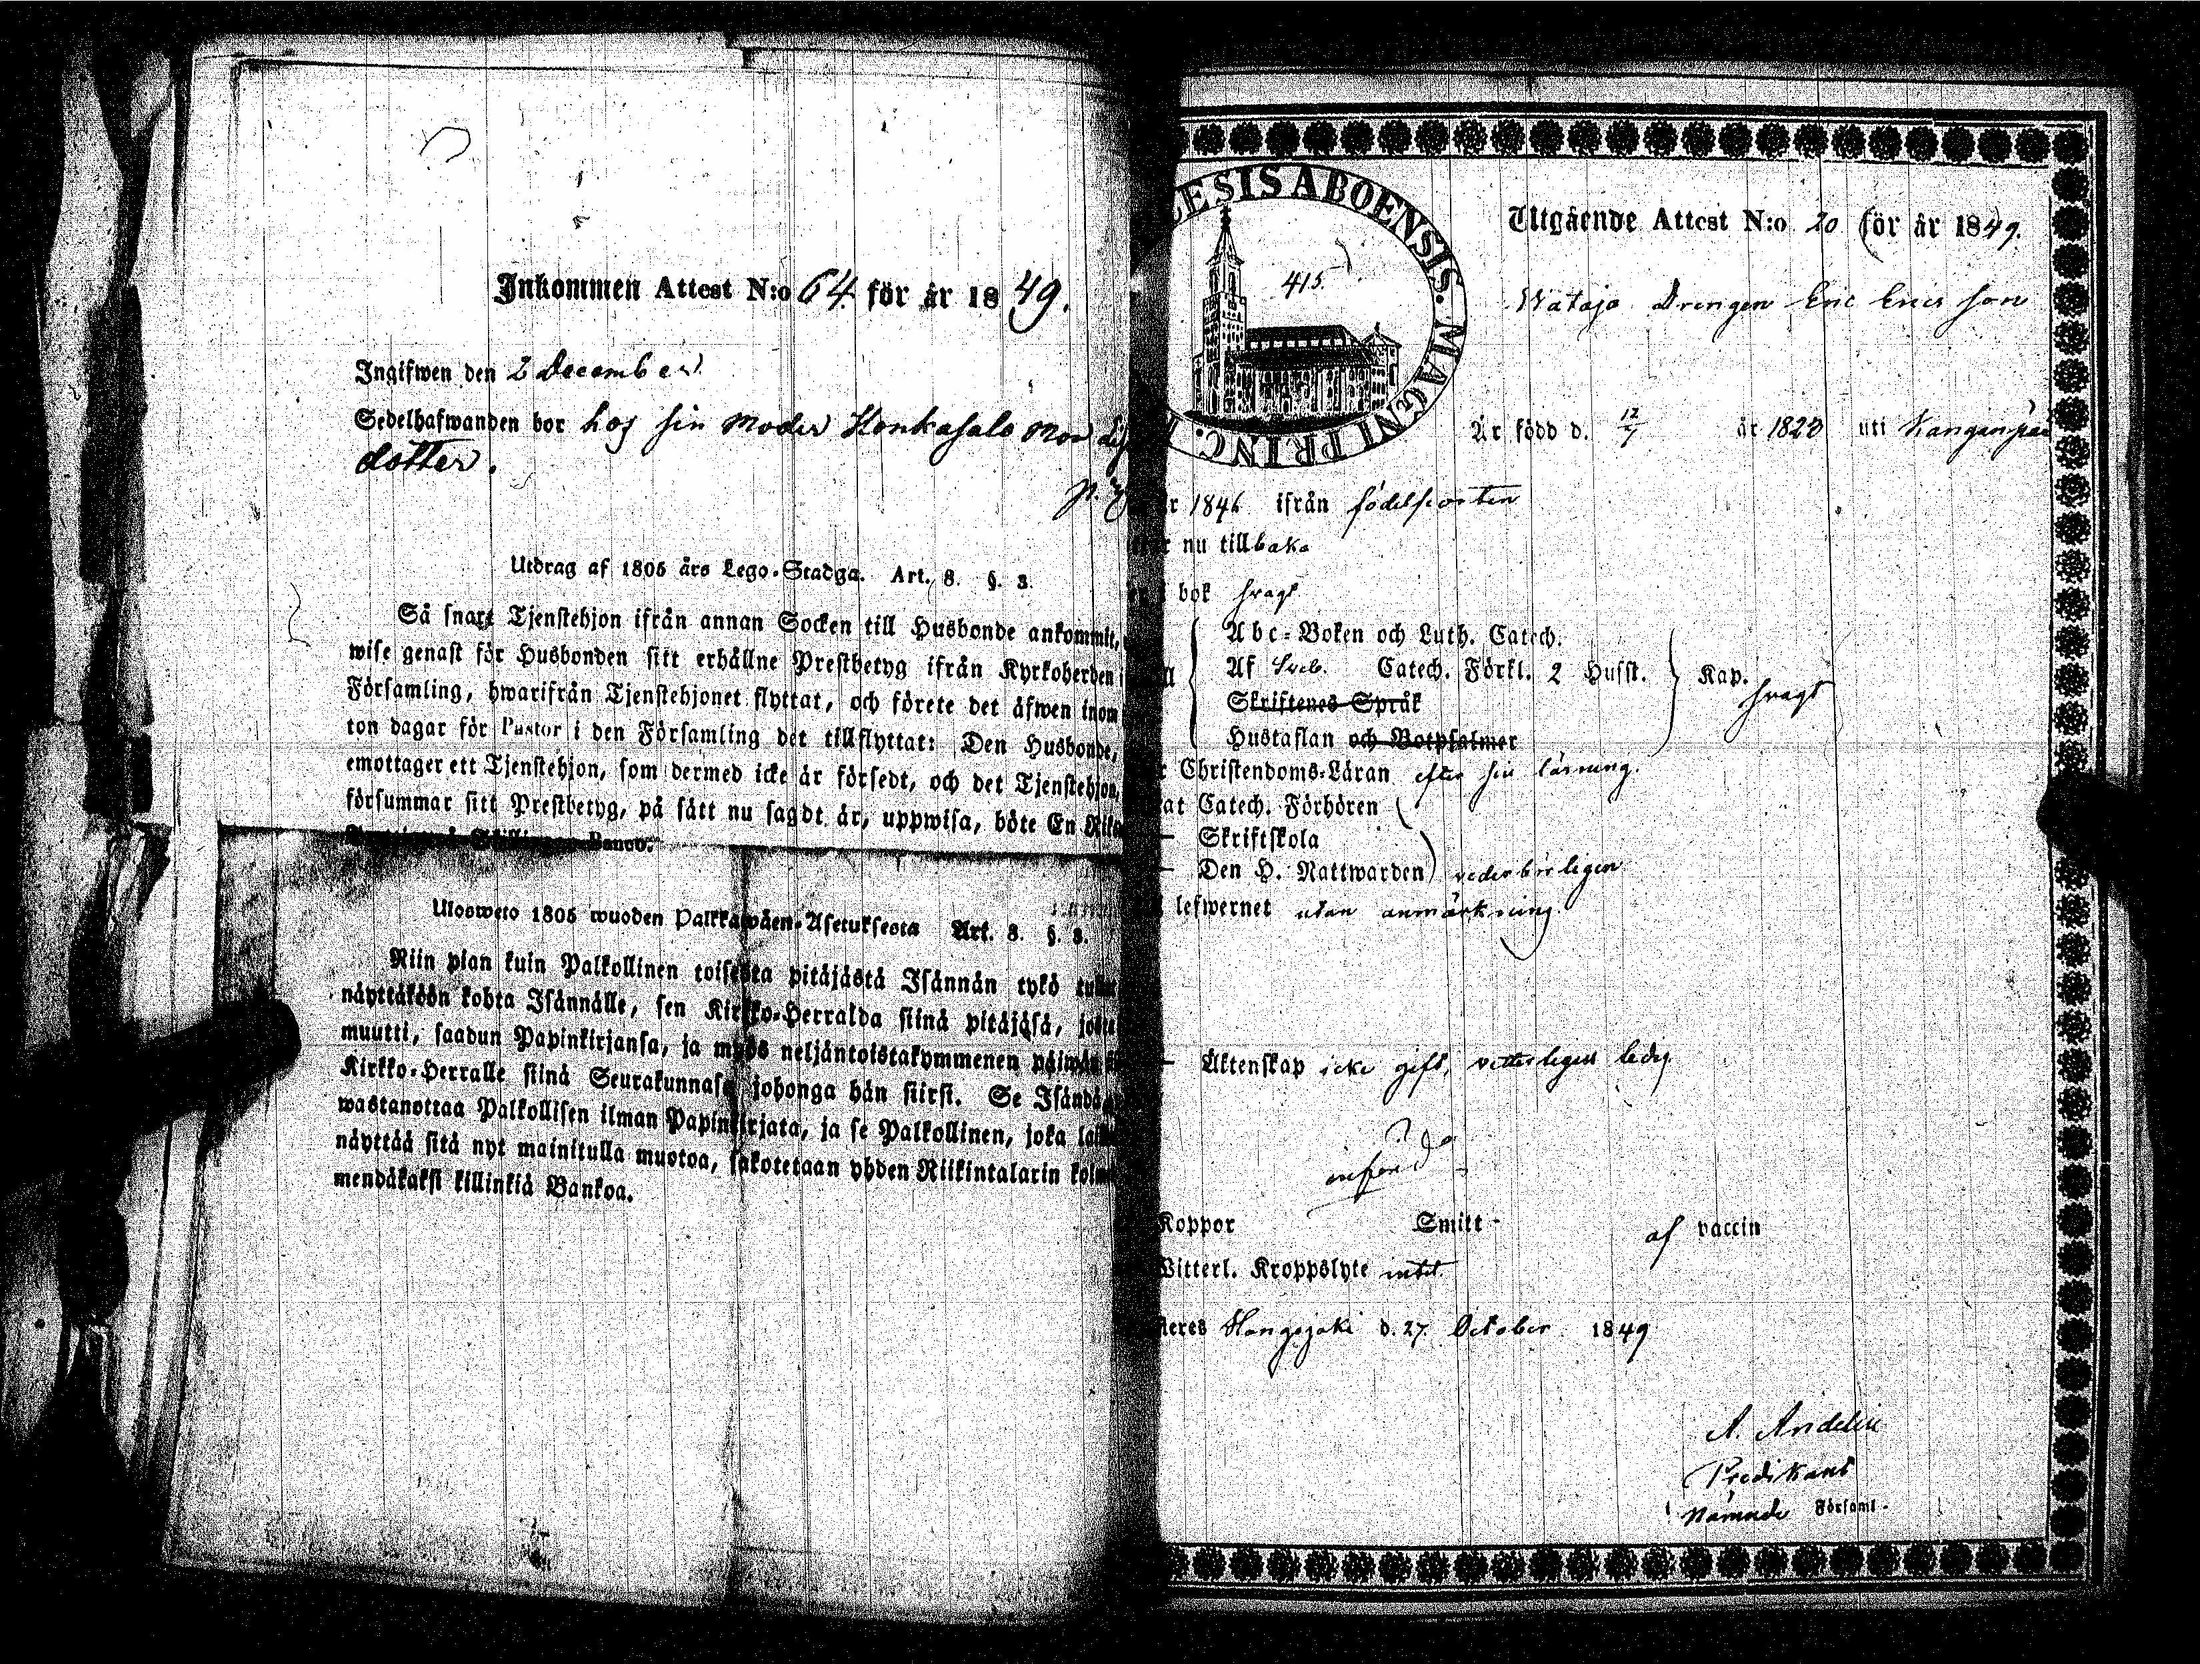 Inkommen Attest N:o 64 för år 1849.
Ingifwen den 2 December
Sedelhafwanden bor hos sin moder Honkasalo
dotter.
Utdrag af 1805 års Lego-Stadga. Art. 8. §. 3.
Så snart Tjenstehjon ifrån annan Socken till Husbonde ankommit,
wise genast för Husbonden sitt erhållne Prestbetyg ifrån Kyrkoherden i
Församling, hwarifrån Tjenstehjonet flyttat, och förete det äfwen inom
ton dagar för Pastor i den Församling det tillflyttat: Den Husbonde,
emottager ett Tjenstehjon, som dermed icke är försedt, och det Tjenstehjon,
försummar sitt Prestbetyg, på sätt nu sagdt är, uppwisa, böte En
Skillingar Banco.
Ulosweto 1805 wuoden Palkkawäen-Asetuksesta Art. 8. §. 3.
Niin pian kuin Palkollinen toisesta pitäjästä Isännän tykö
näyttäköön kohta Isännälle, sen Kirkko-Herralda siinä pitäjäsä,
muutti, saadun Papinkirjansa, ja myös neljäntoistakymmenen päiwän
Kirkko-Herralle siinä Seurakunnasa johonga hän siirsi. Se Isändä
wastanottaa Palkollisen ilman Papinkirjata, ja se Palkollinen, joka
näyttää sitä nyt mainitulla muotoa, sakotetaan yhden Riikintalarin
mendäkaksi killinkiä Bankoa.
ESIS ABOENSIS. MAGNI PRINC.
415
Utgående Attest N:o 20 för år 1849.
Drengen Eric Ericsson
Är född d. 12/7 år 1823 uti
r 1846 ifrån
nu tillbaka
bok svagt
Abc-Boken och Luth. Catech.
Af Sveb. Catech. Förkl. 2 Husst. Kap. svagt
Skriftenes Språk
Hustaflan och Botpsalmer
Christendoms-Läran efter sin lärning.
at Catech. Förhören
Skriftskola
Den H. Nattwarden vederbörligen
lefwernet utan anmärkning.
Äktenskap icke gift, vetterligen ledig
Koppor Smitt- af vaccin
Witterl. Kroppslyte intet
teres Hongojoki d. 27 October 1849
A. Andelin
Predikant
i nämnde Församl.